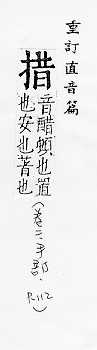 重訂直音篇
措
音醋頓也置
也安也著也
(卷二·手部·
P.112)